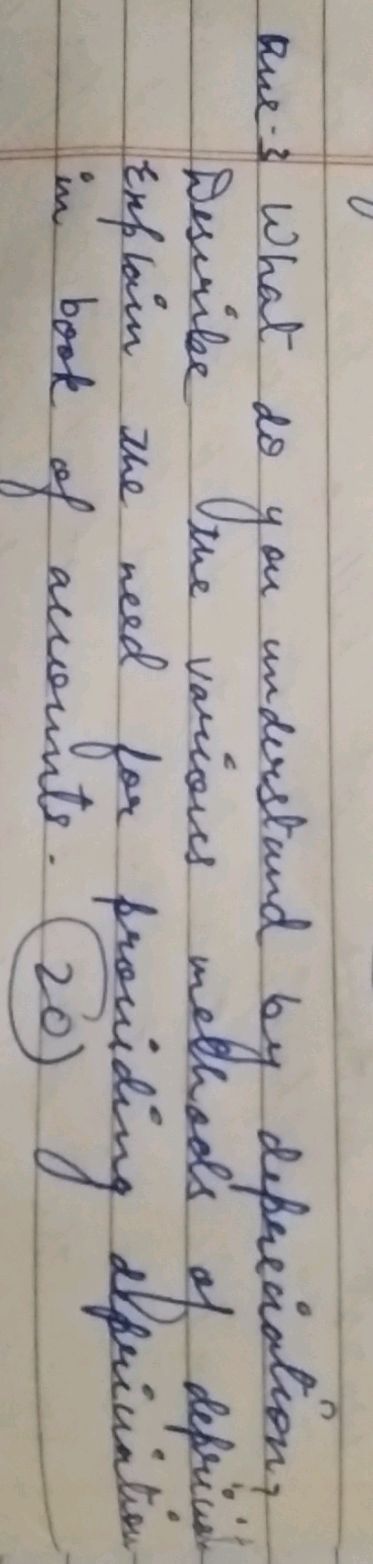 Que-3 What do you understand by depreciation,
Describe the various methods of
Explain the need for providing depriciation
in book of accounts. (20)